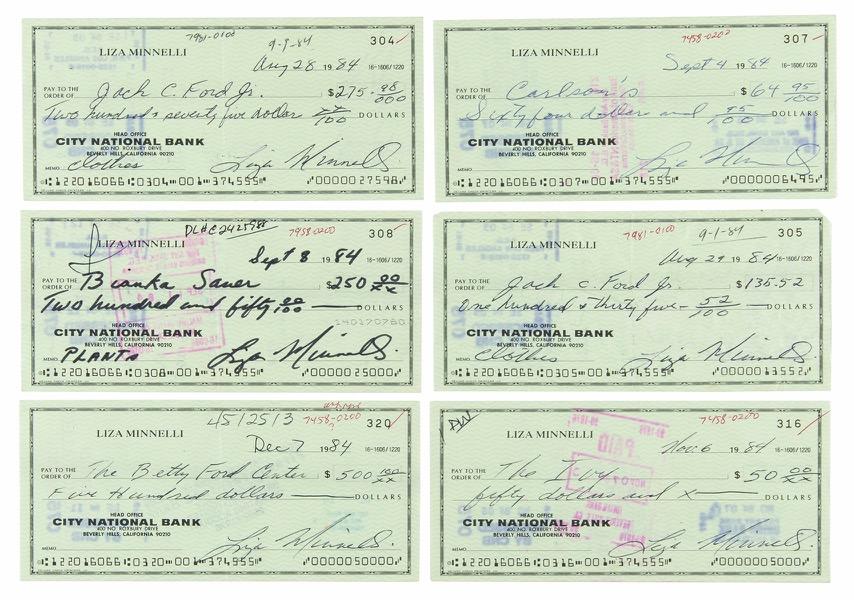 LIZA MINNELLI
7981-0100
9-9-84
304
Aug 28 1984 16-1606/1220
PAY TO THE ORDER OF Jack C. Ford Jr. $275.98
Two hundred & seventy five dollars 100 DOLLARS
HEAD OFFICE
CITY NATIONAL BANK
400 NO. ROXBURY DRIVE
BEVERLY HILLS, CALIFORNIA 90210
MEMO clothes Liza Minnelli
122016066 0304 001 374555 0000027598
LIZA MINNELLI
7458-0200
307
Sept 4 1984 16-1606/1220
PAY TO THE ORDER OF Carlson's $64 95/100
Sixty four dollars and 95/100 DOLLARS
HEAD OFFICE
CITY NATIONAL BANK
400 NO. ROXBURY DRIVE
BEVERLY HILLS, CALIFORNIA 90210
MEMO Liza Minnelli
122016066 0307 001 374555 0000006495
LIZA MINNELLI
7958-0200
308
Sept 8 1984 16-1606/1220
PAY TO THE ORDER OF Bianka Sauer $250 00/xx
Two hundred and fifty 00/100 DOLLARS
HEAD OFFICE
CITY NATIONAL BANK
400 NO. ROXBURY DRIVE
BEVERLY HILLS, CALIFORNIA 90210
MEMO PLANTS Liza Minnelli
122016066 0308 001 374555 0000025000
LIZA MINNELLI
7981-0100
9-1-84
305
Aug 29 1984 16-1606/1220
PAY TO THE ORDER OF Jack C. Ford Jr. $135.52
One hundred & thirty five 52/100 DOLLARS
HEAD OFFICE
CITY NATIONAL BANK
400 NO. ROXBURY DRIVE
BEVERLY HILLS, CALIFORNIA 90210
MEMO clothes Liza Minnelli
122016066 0305 001 374555 0000013552
LIZA MINNELLI
4512513
7458-0200
320
Dec 7 1984 16-1606/1220
PAY TO THE ORDER OF The Betty Ford Center $500 100/xx
Five Hundred dollars DOLLARS
HEAD OFFICE
CITY NATIONAL BANK
400 NO. ROXBURY DRIVE
BEVERLY HILLS, CALIFORNIA 90210
MEMO Liza Minnelli
122016066 0320 001 374555 0000050000
LIZA MINNELLI
7458-0200
316
Nov. 6 1984 16-1606/1220
PAID
PAY TO THE ORDER OF The Ivy $50 00/xx
fifty dollars and x DOLLARS
HEAD OFFICE
CITY NATIONAL BANK
400 NO. ROXBURY DRIVE
BEVERLY HILLS, CALIFORNIA 90210
MEMO Liza Minnelli
122016066 0316 001 374555 0000005000